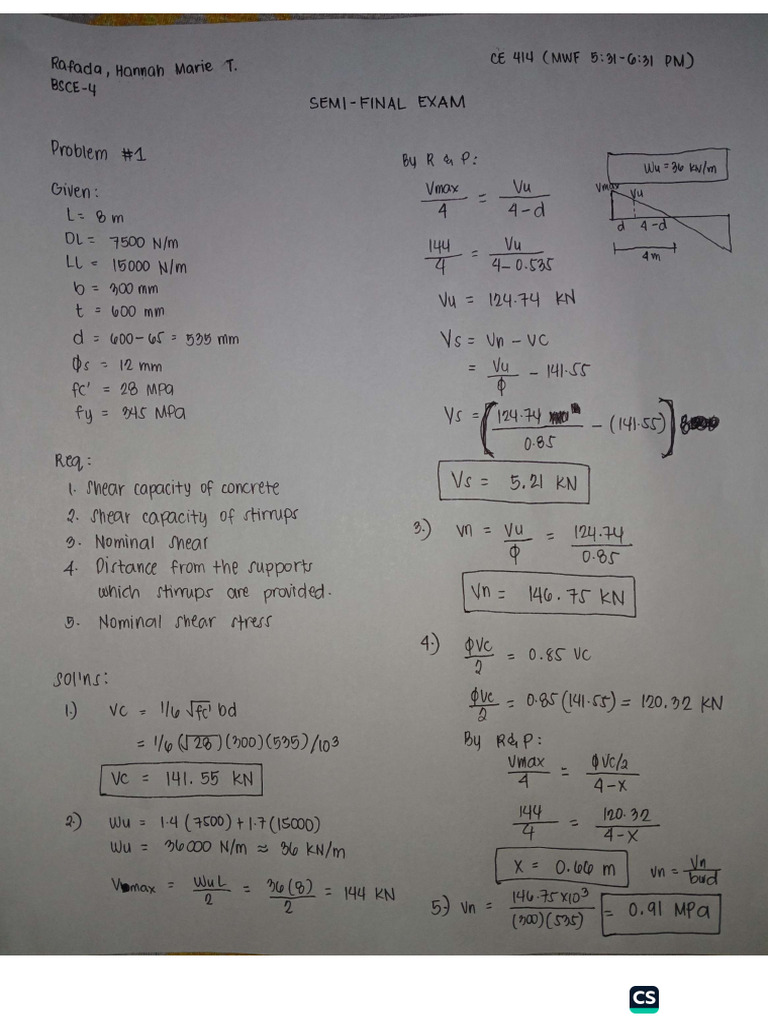 Rafada, Hannah Marie T.
BSCE-4
CE 414 (MWF 5:31-6:31 PM)
SEMI-FINAL EXAM
Problem #1
Given:
L = 8 m
DL = 7500 N/m
LL = 15000 N/m
b = 300 mm
t = 600 mm
d = 600-65 = 535 mm
φs = 12 mm
fc' = 28 MPa
fy = 345 MPa
Req:
1. Shear capacity of concrete
2. Shear capacity of stirrups
3. Nominal shear
4. Distance from the supports
which stirrups are provided.
5. Nominal shear stress
Sol'ns:
1.) Vc = 1/6 √fc' bd
= 1/6 (√28)(300)(535)/10³
Vc = 141.55 KN
2.) Wu = 1.4(7500)+1.7(15000)
Wu = 36000 N/m ≈ 36 KN/m
Vmax = WuL/2 = 36(8)/2 = 144 KN
By R & P:
Vmax/4 = Vu/4-d
144/4 = Vu/4-0.535
Vu = 124.74 KN
Vs = Vn - VC
= Vu/φ - 141.55
Vs = [124.74/0.85 - (141.55)]
Vs = 5.21 KN
Wu = 36 KN/m
Vmax
Vu
d 4-d
4m
3.) Vn = Vu/φ = 124.74/0.85
Vn = 146.75 KN
4.) φVc/2 = 0.85 Vc
φVc/2 = 0.85(141.55) = 120.32 KN
By R&P:
Vmax/4 = φVc/2/4-x
144/4 = 120.32/4-X
X = 0.66 m
vn = Vn/bwd
5.) Vn = 146.75x10³/(300)(535) = 0.91 MPa
CS